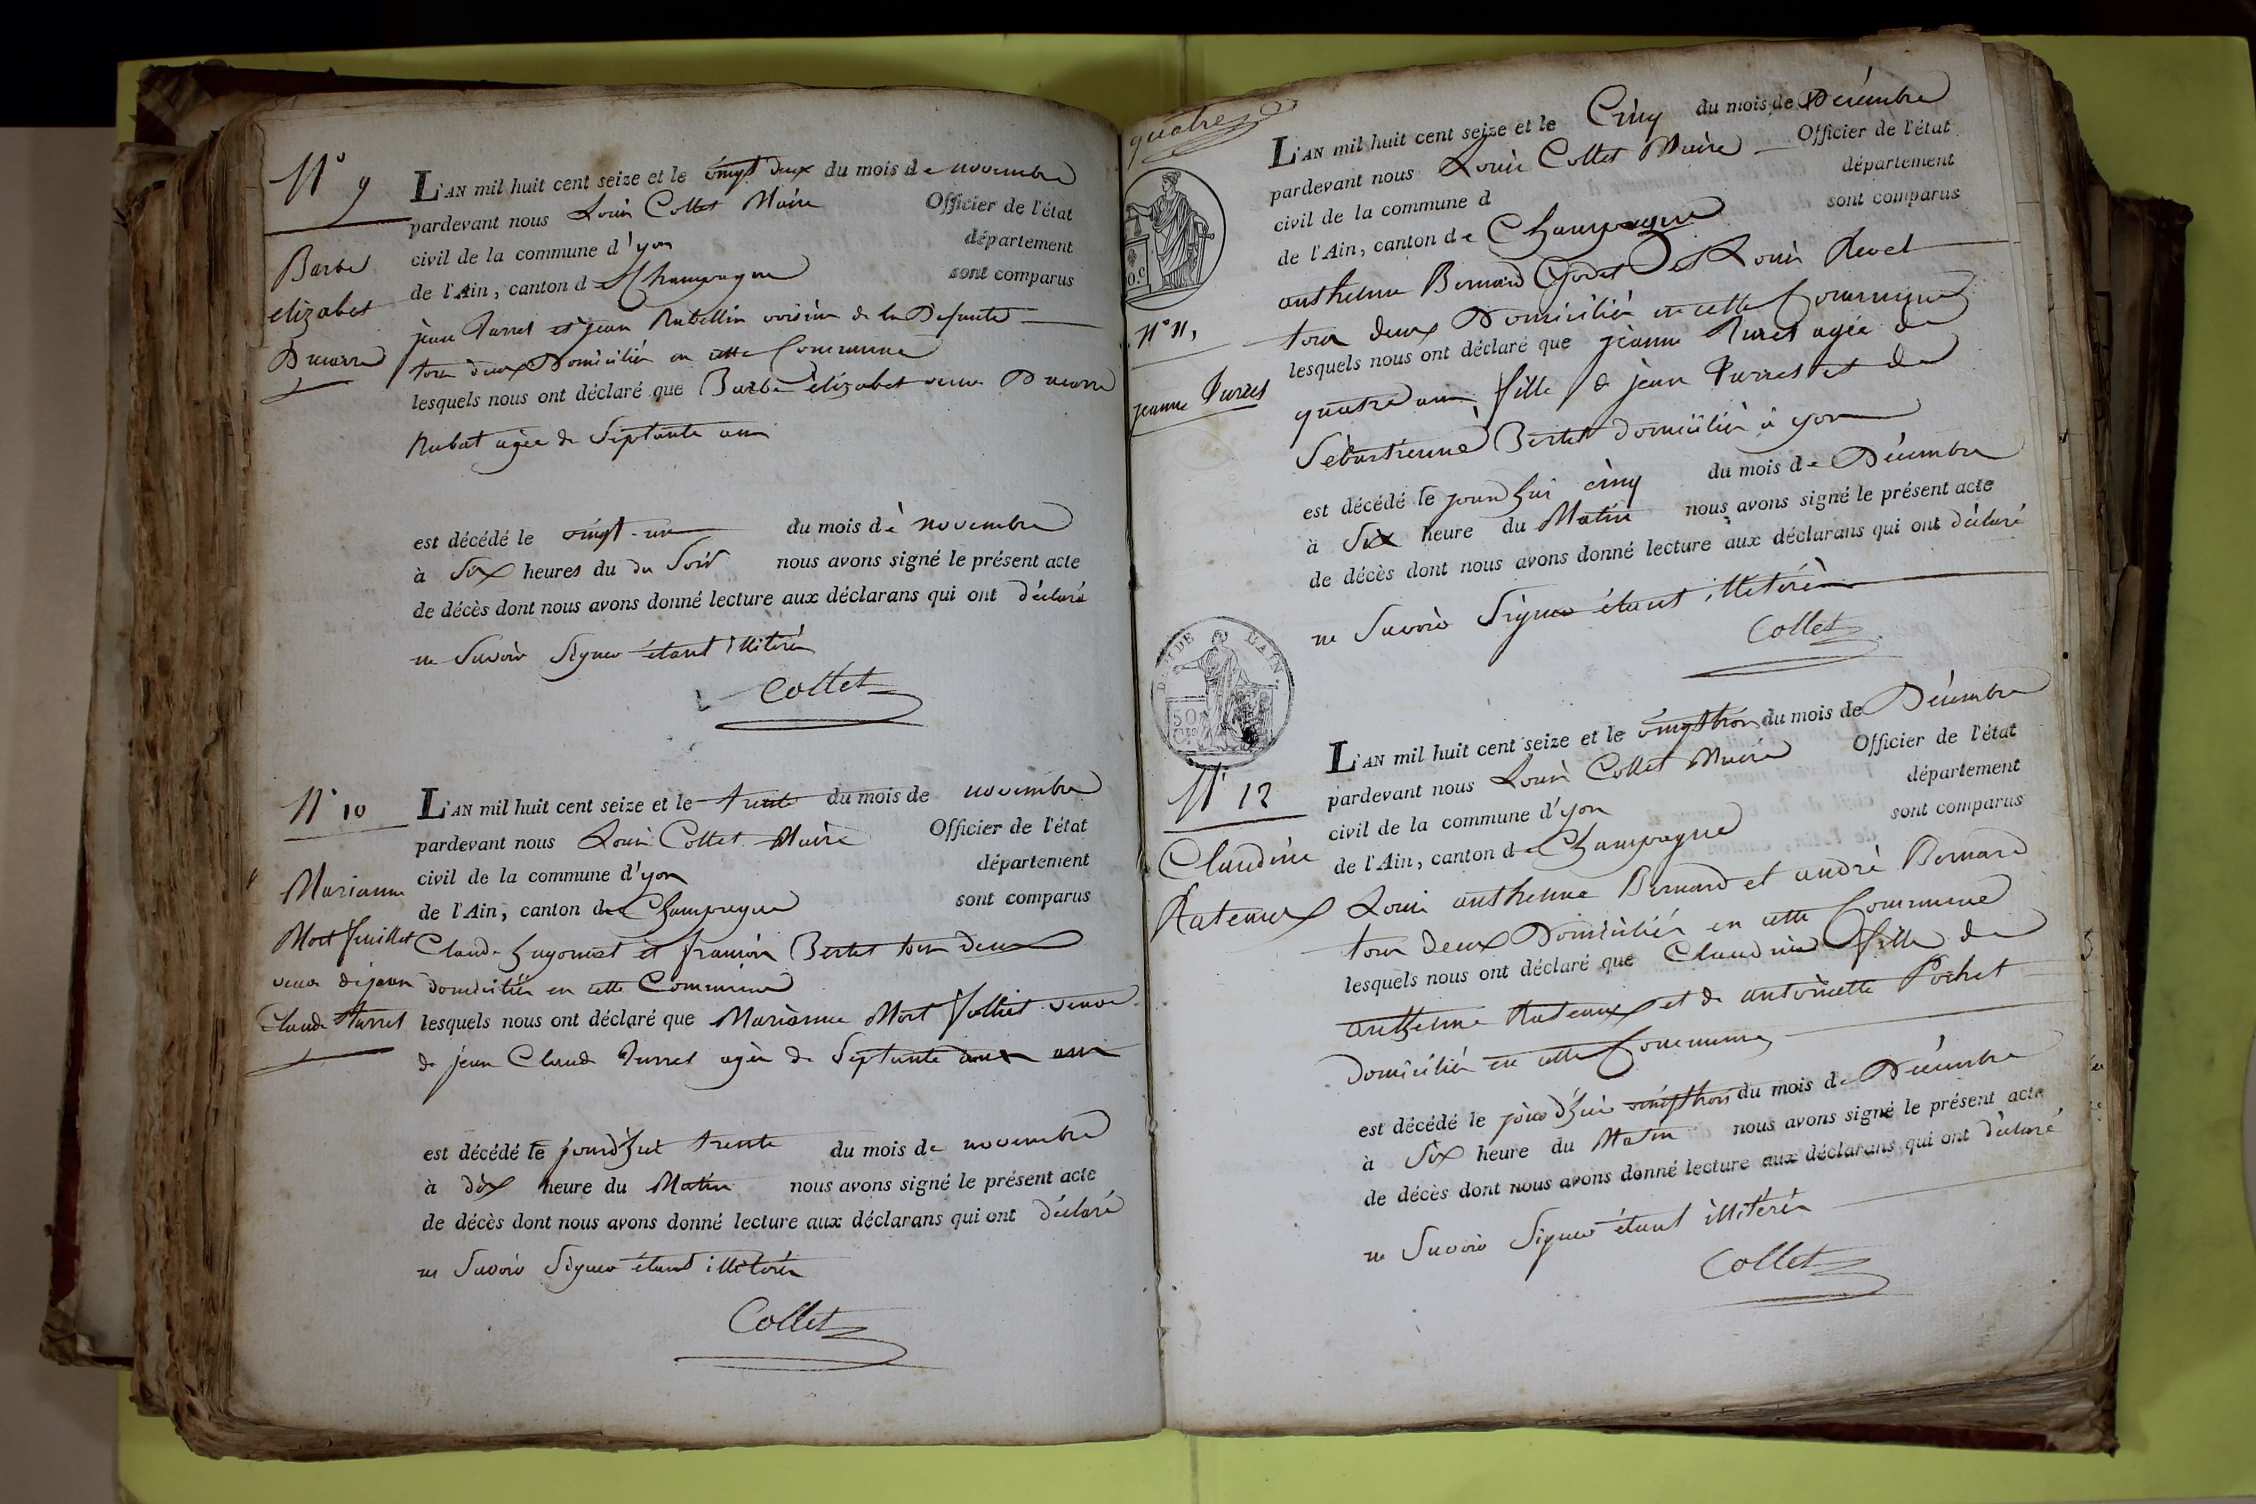 N° 9
Barbe
elizabet
Ducarre
L'AN mil huit cent seize et le vingt deux du mois de novembre
pardevant nous Louis Collet Maire Officier de l'état
civil de la commune d'yon département
de l'Ain, canton de Champagne sont comparus
jean Turrel et jean Rubellin voisins de la Defunte
tous deux Domiciliés en cette Commune
lesquels nous ont déclaré que Barbe élizabet veuve Ducarre
Rubat agée de Septante ans
est décédé le vingt-un du mois de novembre
à Six heures du du Soir nous avons signé le présent acte
de décès dont nous avons donné lecture aux déclarans qui ont déclaré
ne Savoir Signer étant illiterés
Collet
N° 10
Marianne
Mort feuillet
veuve de jean
Claude Turrel
L'AN mil huit cent seize et le trente du mois de novembre
pardevant nous Louis Collet Maire Officier de l'état
civil de la commune d'yon département
de l'Ain, canton de Champagne sont comparus
Claude hugonnet et françois Bertet tous deux
domiciliés en cette Commune
lesquels nous ont déclaré que Marianne Mort folliet veuve
de jean Claude Turrel agée de Septante ans
est décédé le jourd'hui trente du mois de novembre
à dix heure du Matin nous avons signé le présent acte
de décès dont nous avons donné lecture aux déclarans qui ont déclaré
ne Savoir Signer étant illiterés
Collet
quatre
N° 11
jeanne Turrel
L'AN mil huit cent seize et le Cinq du mois de Décembre
pardevant nous Louis Collet Maire Officier de l'état
civil de la commune d département
de l'Ain, canton de Champagne sont comparus
anthelme Bernard et Louis Revel
tous deux Domiciliés en cette Commune
lesquels nous ont déclaré que jeanne Turrel agée de
quatre ans fille de jean Turrel et de
Sébastienne Bertet domiciliés à yon
est décédé le jourdhui cinq du mois de Décembre
à Six heure du Matin nous avons signé le présent acte
de décès dont nous avons donné lecture aux déclarans qui ont déclaré
ne Savoir Signer étant illiterés
Collet
DE L'AIN
50
N° 12
Claudine
Rateaux
L'AN mil huit cent seize et le vingt trois du mois de Décembre
pardevant nous Louis Collet Maire Officier de l'état
civil de la commune d'yon département
de l'Ain, canton de Champagne sont comparus
Louis anthelme Bernard et andré Bernard
tous deux Domiciliés en cette Commune
lesquels nous ont déclaré que Claudine fille de
anthelme Rateaux et de antoinette Pochet
domiciliés en cette Commune
est décédé le jour d'hui vingt trois du mois de Décembre
à Six heure du Matin nous avons signé le présent acte
de décès dont nous avons donné lecture aux déclarans qui ont déclaré
ne Savoir Signer étant illitérés
Collet